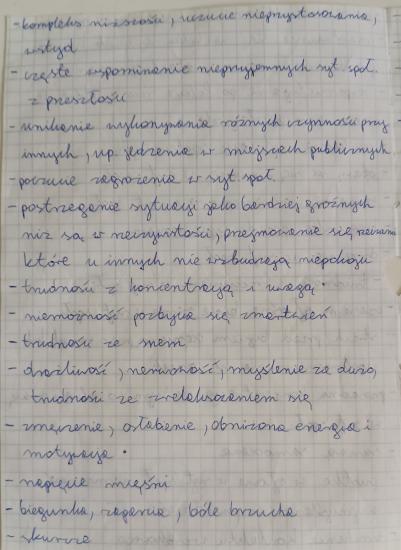 - kompleks niższości, uczucie nieprzystosowania,
wstyd
- częste wspominanie nieprzyjemnych syt. społ.
z przeszłości
- unikanie wykonywania różnych czynności przy
innych, np. jedzenia w miejscach publicznych
- poczucie zagrożenia w syt. społ.
- postrzeganie sytuacji jako bardziej groźnych
niż są w rzeczywistości, przejmowanie się rzeczami
które u innych nie wzbudzają niepokoju
- trudności z koncentracją i uwagą •
- niemożność pozbycia się zmartwień
- trudności ze snem
- drażliwość, nerwowość, myślenie za dużo,
trudności ze zrelaksowaniem się
- zmęczenie, osłabienie, obniżona energia i
motywacja •
- napięcie mięśni
- biegunka, zaparcia, bóle brzucha
- skurcze